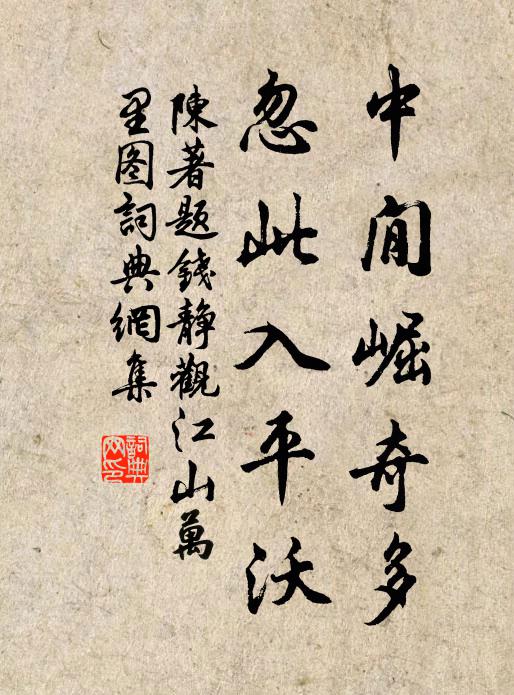 中間崛奇多
忽此入平沃
陳著題錢靜觀江山萬
里图詞典網集
詞典
网印